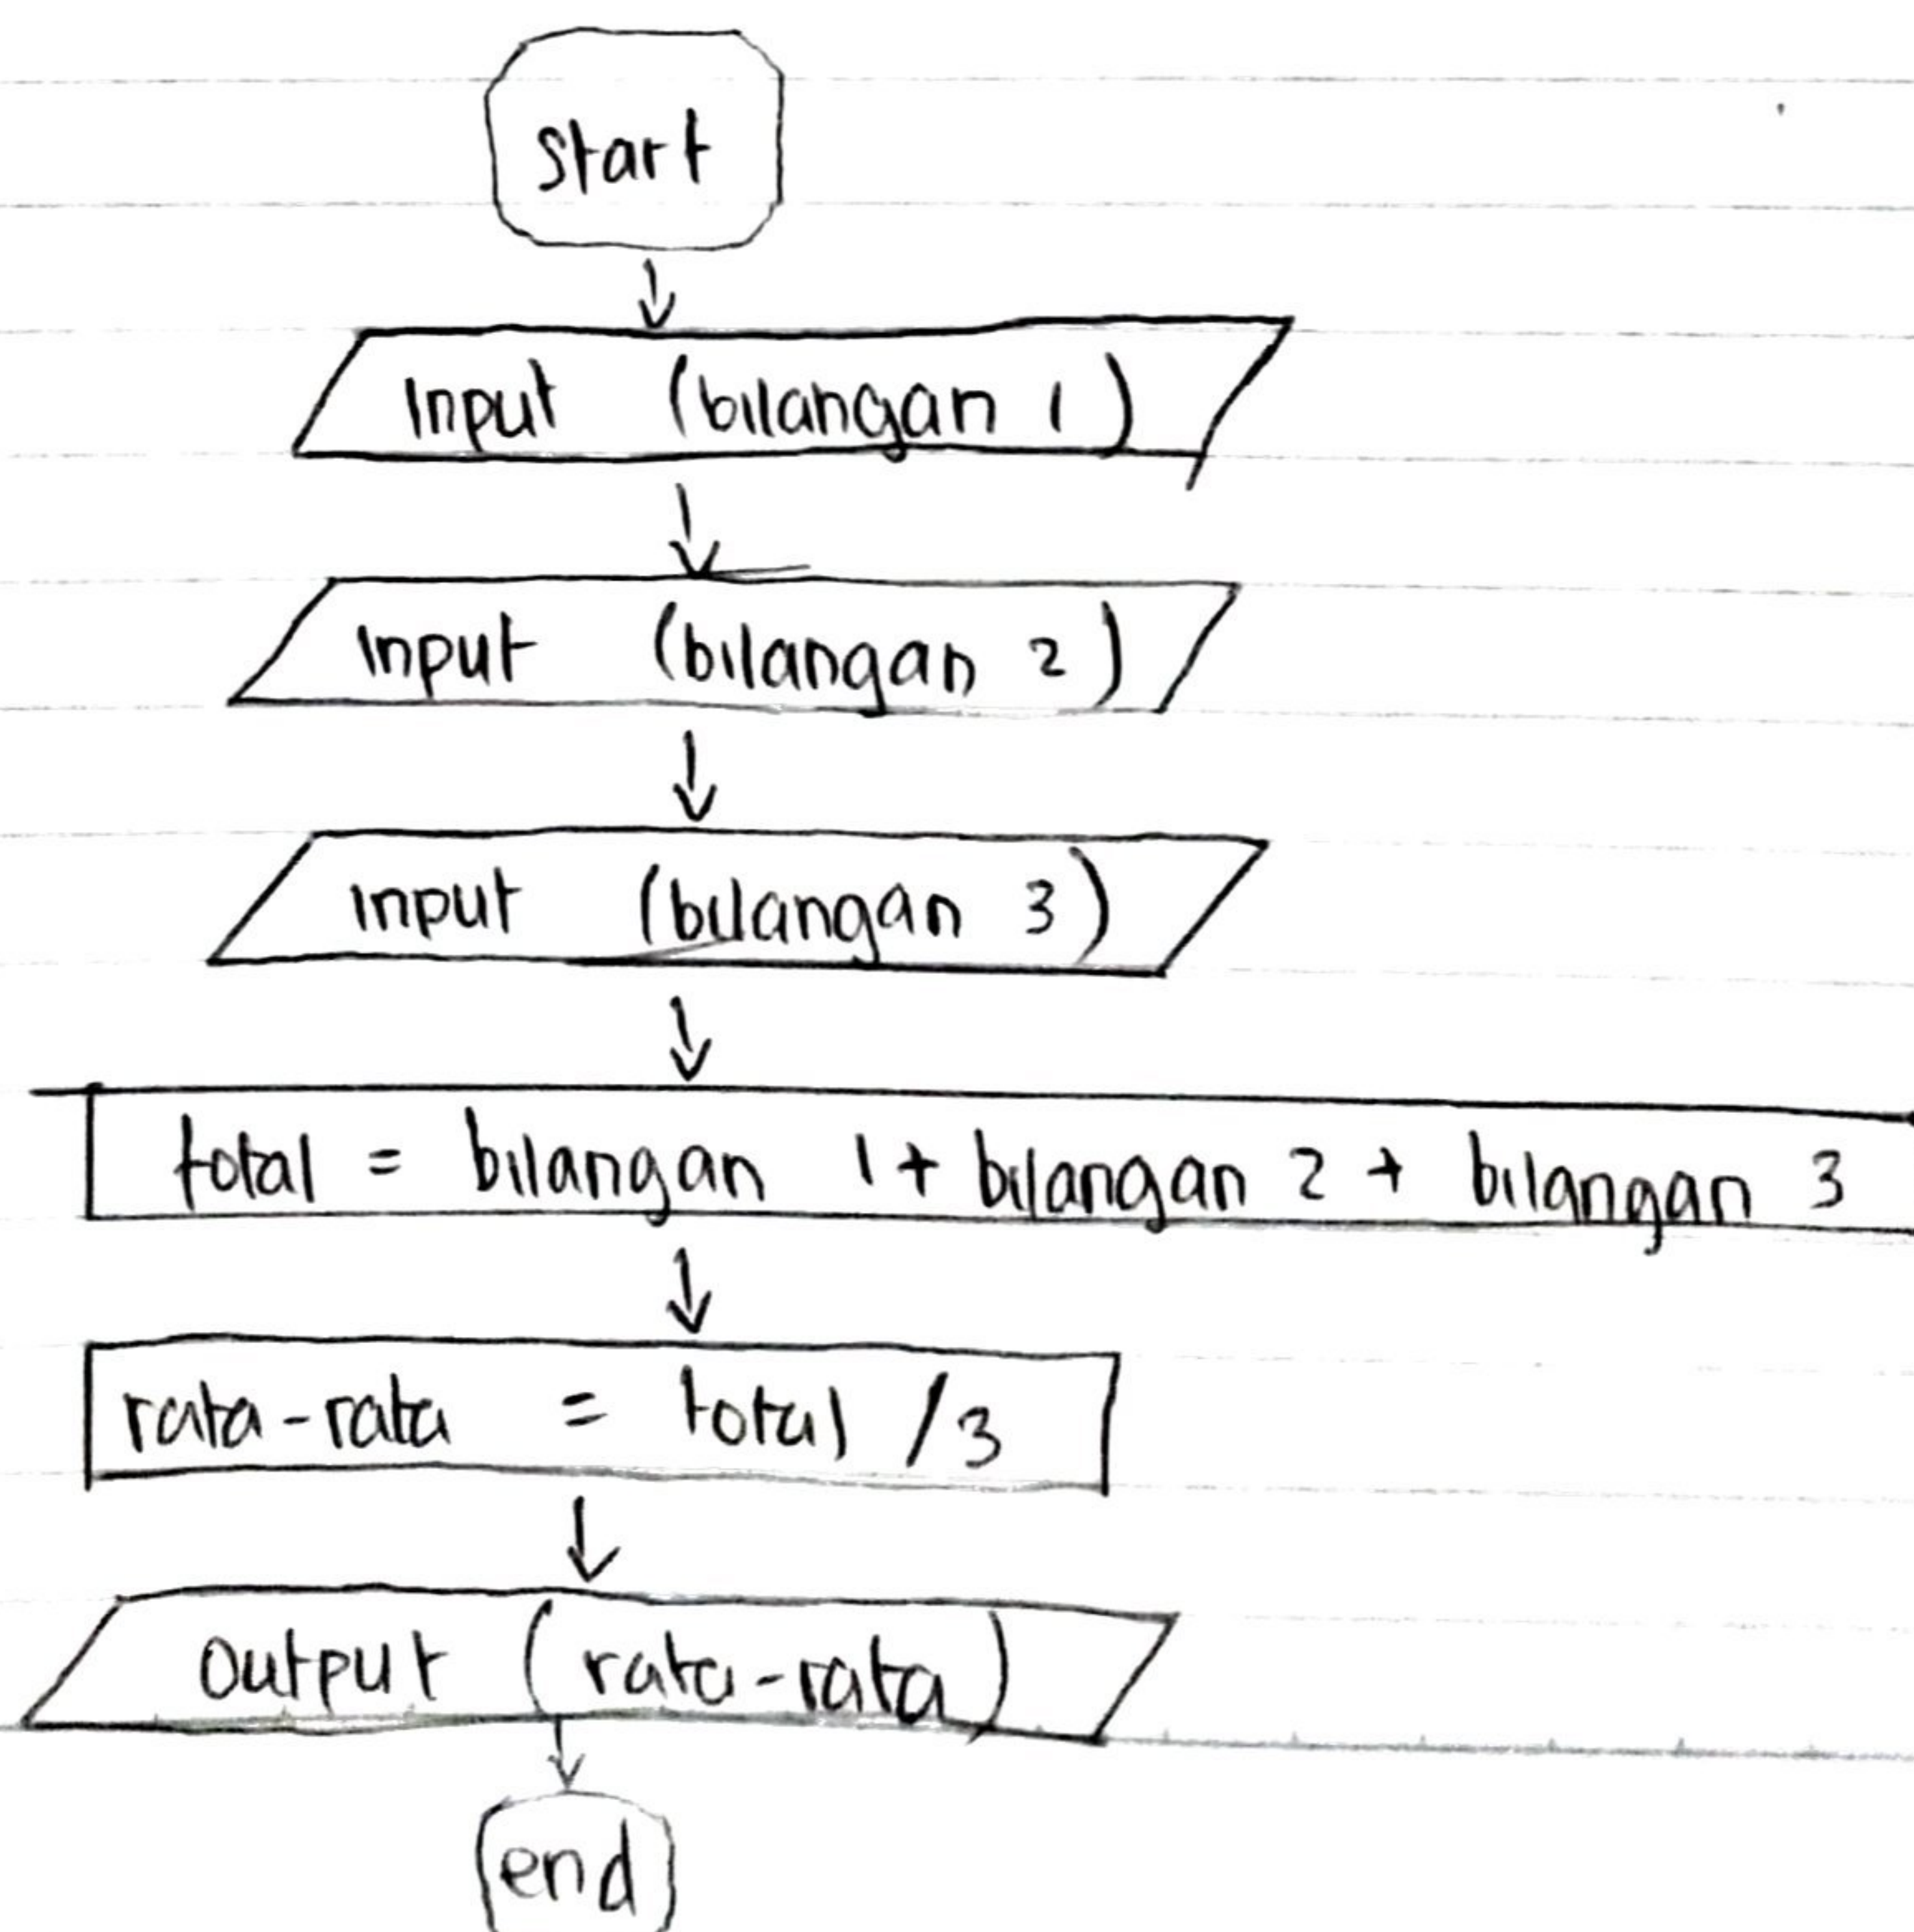 start
Input (bilangan 1)
Input (bilangan 2)
Input (bilangan 3)
total = bilangan 1 + bilangan 2 + bilangan 3
rata-rata = total / 3
Output (rata-rata)
end